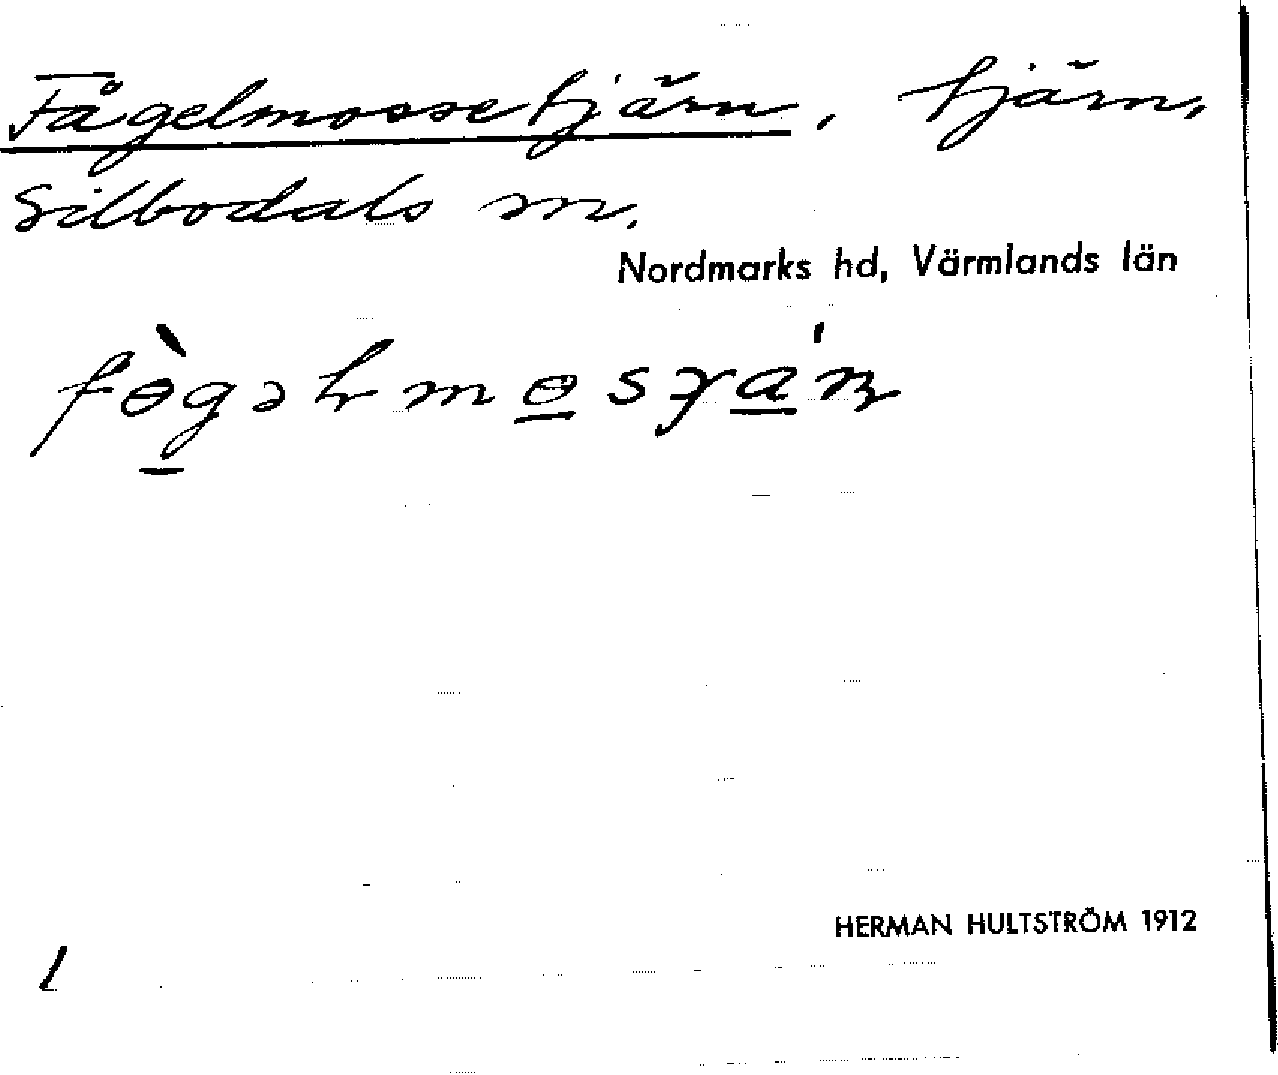 Fågelmossetjärn, tjärn,
Silbodals sn.
Nordmarks hd, Värmlands län
HERMAN HULTSTRÖM 1912
1